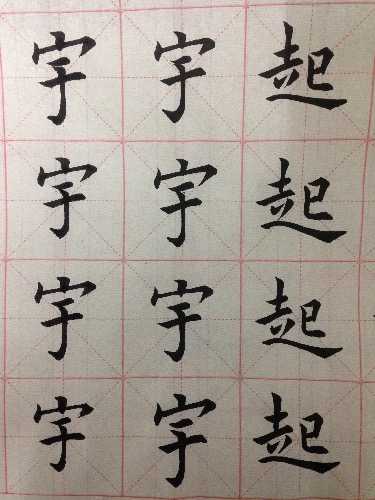 起起起起
宇宇宇宇
宇宇宇宇